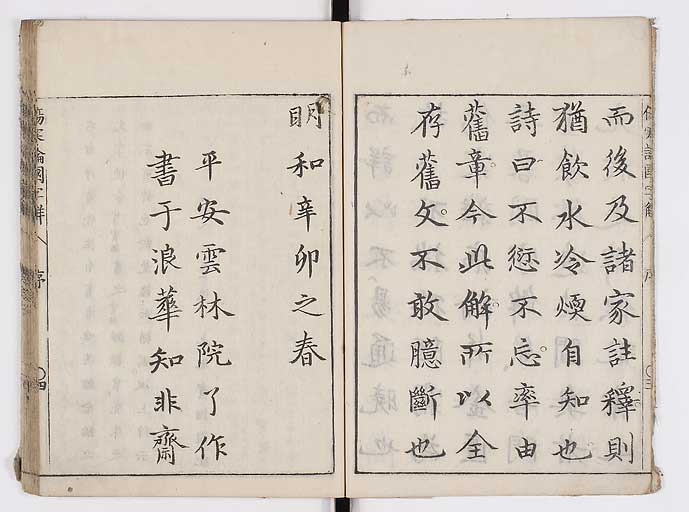 而後及諸家註釋則
猶飲水冷煗自知也
詩曰不愆不忘率由
舊章今此解所以全
存舊文不敢臆斷也
明和辛卯之春
平安雲林院了作
書于浪華知非齋
傷寒論國字解 序 四